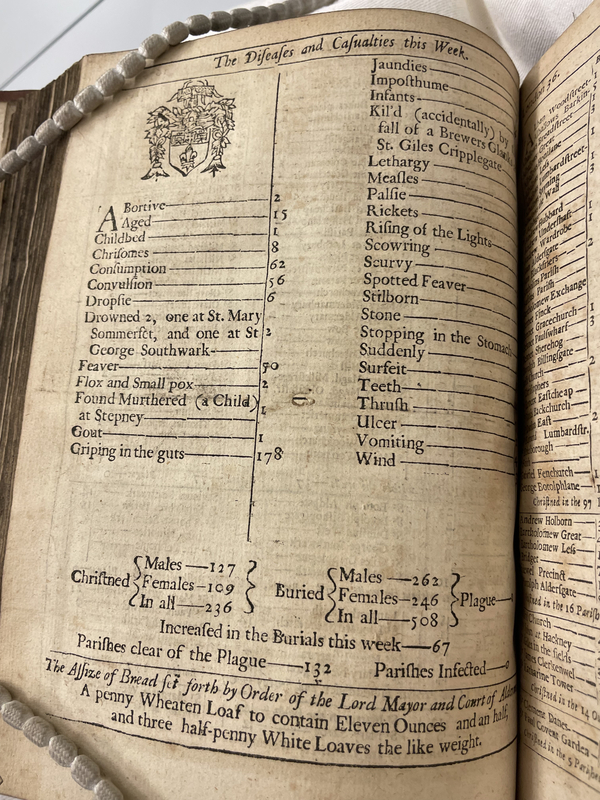 The Diſeaſes and Caſualties this Week.
ABortive 2
Aged 15
Childbed 1
Chriſomes 8
Conſumption 62
Convulſion 56
Dropſie 6
Drowned 2, one at St. Mary
Sommerſet, and one at St 2
George Southwark
Feaver 50
Flox and Small pox 2
Found Murthered (a Child)
at Stepney 1
Gout 1
Griping in the guts 178
Jaundies
Impoſthume
Infants
Kil'd (accidentally) by
fall of a Brewers
St. Giles Cripplegate
Lethargy
Meaſles
Palſie
Rickets
Riſing of the Lights
Scowring
Scurvy
Spotted Feaver
Stilborn
Stone
Stopping in the Stomach
Suddenly
Surfeit
Teeth
Thruſh
Ulcer
Vomiting
Wind
Chriſtned { Males 127 Females 109 In all 236 }
Buried { Males 262 Females 246 In all 508 } Plague
Increaſed in the Burials this week 67
Pariſhes clear of the Plague 132 Pariſhes Infected 0
The Aſſize of Bread ſet forth by Order of the Lord Mayor and Court of
A penny Wheaten Loaf to contain Eleven Ounces and an half,
and three half-penny White Loaves the like weight.
Woodſtreet
Barkin
Wall
Hubbard
Underſhaft
Wardrobe
Pariſh
Pariſh
Exchange
Finck
Gracechurch 1
Paulſwharf 3
Sherehog
Billingſgate 2
Eaſtcheap
Backchurch
Eaſt 2
Lumbardſtr.
Fenchurch 1
George Botolphlane
Chriſtned in the 97
Andrew Holborn
Bartholomew Great
Bartholomew Leſs
Bridget
Precinct
Alderſgate
in the 16 Pariſh
Hackney
in the fields
Clerkenwel
Katharine Tower
Chriſtned in the 14
Clement Danes
Covent Garden
Chriſtned in the 5 Pariſhes